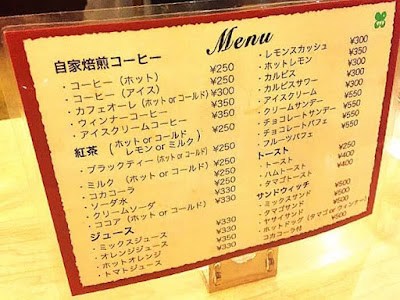 Menu
自家焙煎コーヒー
・コーヒー（ホット） ¥250
・コーヒー（アイス） ¥250
・カフェオーレ（ホット or コールド） ¥300
・ウィンナーコーヒー ¥350
・アイスクリームコーヒー ¥350
紅茶（ホット or コールド
レモン or ミルク）
・ブラックティー（ホット or コールド） ¥250
・ミルク（ホット or コールド） ¥250
・コカコーラ ¥250
・ソーダ水 ¥250
・クリームソーダ ¥330
・ココア（ホット or コールド） ¥330
ジュース
・ミックスジュース ¥330
・オレンジジュース ¥350
・ホットオレンジ ¥330
・トマトジュース ¥330
・レモンスカッシュ ¥300
・ホットレモン ¥350
・カルピス ¥300
・カルピスサワー ¥300
・アイスクリーム ¥350
・クリームサンデー ¥550
・チョコレートサンデー ¥550
・チョコレートパフェ ¥550
・フルーツパフェ ¥550
トースト
・トースト ¥250
・ハムトースト ¥400
・タマゴトースト ¥400
サンドウィッチ
・ミックスサンド ¥500
・タマゴサンド ¥500
・ヤサイサンド ¥500
・ホットドッグ（タマゴ or ウィンナー） ¥500
コカコーラ付